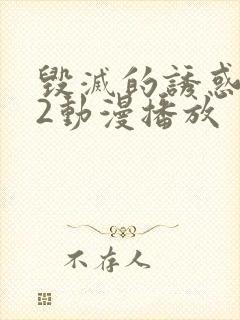 毀滅的誘惑
2動漫播放
不存人